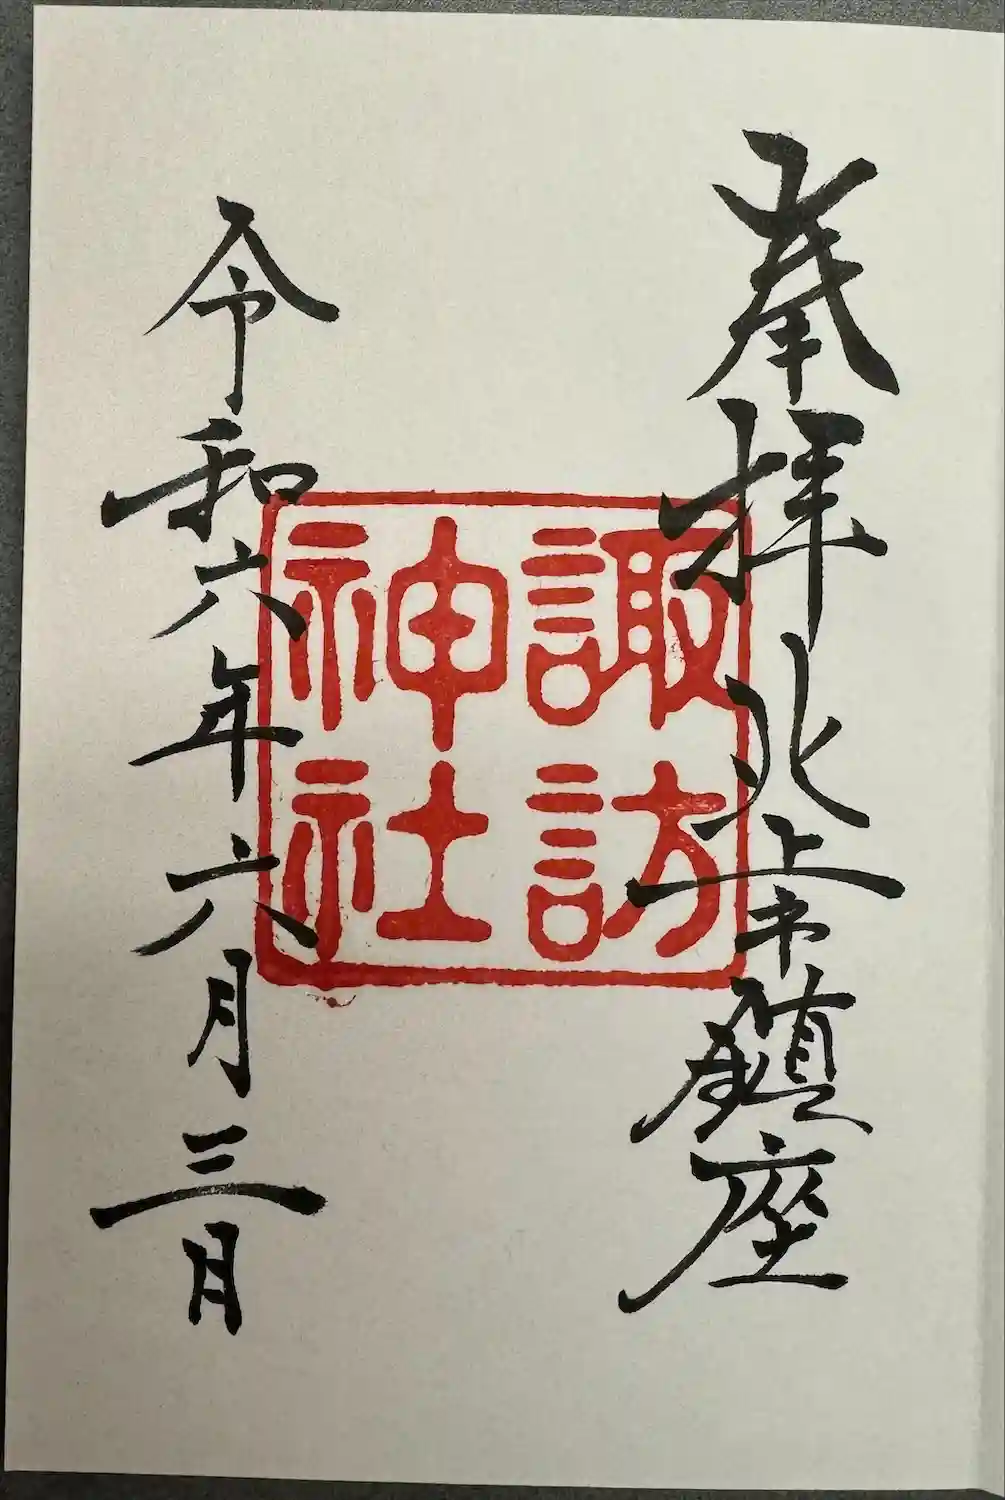 奉拝 北上市鎮座
諏訪
神社
令和六年六月三日